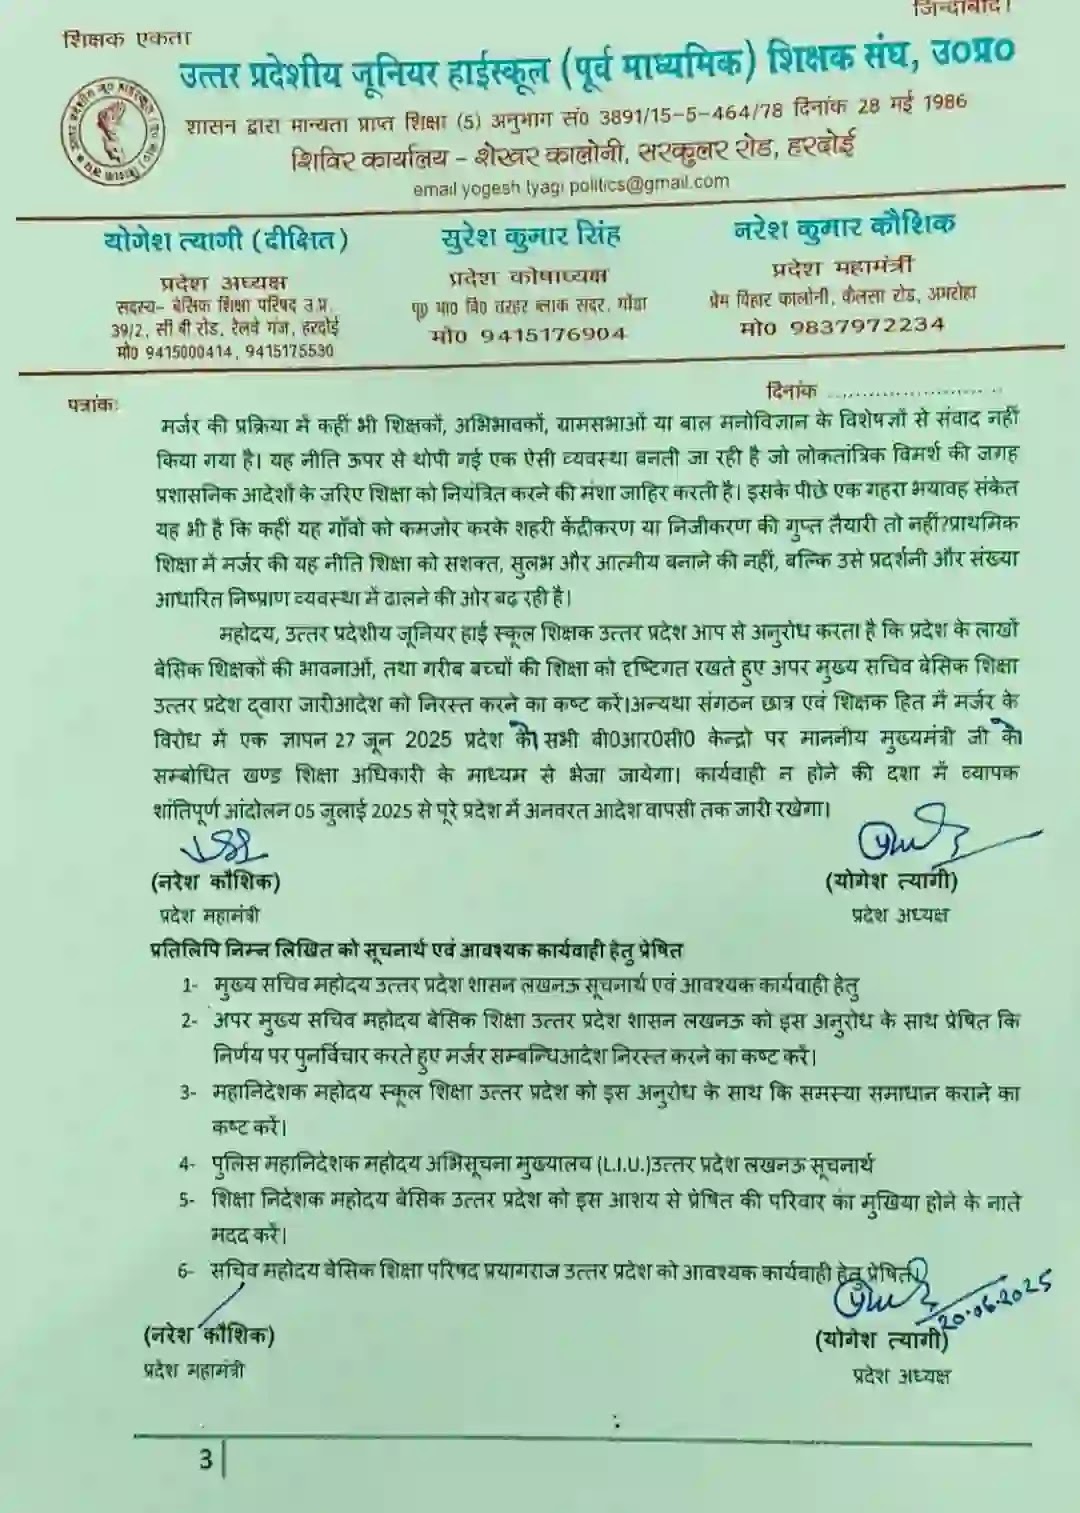 जिन्दाबाद।
शिक्षक एकता
उत्तर प्रदेशीय जूनियर हाईस्कूल (पूर्व माध्यमिक) शिक्षक संघ, उ०प्र०
शासन द्वारा मान्यता प्राप्त शिक्षा (5) अनुभाग सं० 3891/15-5-464/78 दिनांक 28 मई 1986
शिविर कार्यालय - शेखर कालोनी, सरकुलर रोड, हरदोई
email yogesh tyagi politics@gmail.com
योगेश त्यागी (दीक्षित)
प्रदेश अध्यक्ष
सदस्य- बेसिक शिक्षा परिषद उ.प्र.
39/2, सी बी रोड, रेलवे गंज, हरदोई
मो० 9415000414, 9415175530
सुरेश कुमार सिंह
प्रदेश कोषाध्यक्ष
पू० मा० वि० तरहर ब्लाक सदर, गोंडा
मो० 9415176904
नरेश कुमार कौशिक
प्रदेश महामंत्री
प्रेम विहार कालोनी, कैलसा रोड, अमरोहा
मो० 9837972234
पत्रांकः
दिनांक ..........................
मर्जर की प्रक्रिया में कहीं भी शिक्षकों, अभिभावकों, ग्रामसभाओं या बाल मनोविज्ञान के विशेषज्ञों से संवाद नहीं
किया गया है। यह नीति ऊपर से थोपी गई एक ऐसी व्यवस्था बनती जा रही है जो लोकतांत्रिक विमर्श की जगह
प्रशासनिक आदेशों के जरिए शिक्षा को नियंत्रित करने की मंशा जाहिर करती है। इसके पीछे एक गहरा भयावह संकेत
यह भी है कि कहीं यह गाँवों को कमजोर करके शहरी केंद्रीकरण या निजीकरण की गुप्त तैयारी तो नहीं?प्राथमिक
शिक्षा में मर्जर की यह नीति शिक्षा को सशक्त, सुलभ और आत्मीय बनाने की नहीं, बल्कि उसे प्रदर्शनी और संख्या
आधारित निष्प्राण व्यवस्था में ढालने की ओर बढ़ रही है।
महोदय, उत्तर प्रदेशीय जूनियर हाई स्कूल शिक्षक उत्तर प्रदेश आप से अनुरोध करता है कि प्रदेश के लाखों
बेसिक शिक्षकों की भावनाओं, तथा गरीब बच्चों की शिक्षा को दृष्टिगत रखते हुए अपर मुख्य सचिव बेसिक शिक्षा
उत्तर प्रदेश द्वारा जारीआदेश को निरस्त करने का कष्ट करें।अन्यथा संगठन छात्र एवं शिक्षक हित में मर्जर के
विरोध में एक ज्ञापन 27 जून 2025 प्रदेश के सभी बी0आर0सी0 केन्द्रो पर माननीय मुख्यमंत्री जी को
सम्बोधित खण्ड शिक्षा अधिकारी के माध्यम से भेजा जायेगा। कार्यवाही न होने की दशा में व्यापक
शांतिपूर्ण आंदोलन 05 जुलाई 2025 से पूरे प्रदेश में अनवरत आदेश वापसी तक जारी रखेगा।
(नरेश कौशिक)
(योगेश त्यागी)
प्रदेश महामंत्री
प्रदेश अध्यक्ष
प्रतिलिपि निम्न लिखित को सूचनार्थ एवं आवश्यक कार्यवाही हेतु प्रेषित
1- मुख्य सचिव महोदय उत्तर प्रदेश शासन लखनऊ सूचनार्थ एवं आवश्यक कार्यवाही हेतु
2- अपर मुख्य सचिव महोदय बेसिक शिक्षा उत्तर प्रदेश शासन लखनऊ को इस अनुरोध के साथ प्रेषित कि
निर्णय पर पुनर्विचार करते हुए मर्जर सम्बन्धिआदेश निरस्त करने का कष्ट करें।
3- महानिदेशक महोदय स्कूल शिक्षा उत्तर प्रदेश को इस अनुरोध के साथ कि समस्या समाधान कराने का
कष्ट करें।
4- पुलिस महानिदेशक महोदय अभिसूचना मुख्यालय (L.I.U.)उत्तर प्रदेश लखनऊ सूचनार्थ
5- शिक्षा निदेशक महोदय बेसिक उत्तर प्रदेश को इस आशय से प्रेषित की परिवार का मुखिया होने के नाते
मदद करें।
6- सचिव महोदय बेसिक शिक्षा परिषद प्रयागराज उत्तर प्रदेश को आवश्यक कार्यवाही हेतु प्रेषित।
20.06.2025
(नरेश कौशिक)
(योगेश त्यागी)
प्रदेश महामंत्री
प्रदेश अध्यक्ष
3